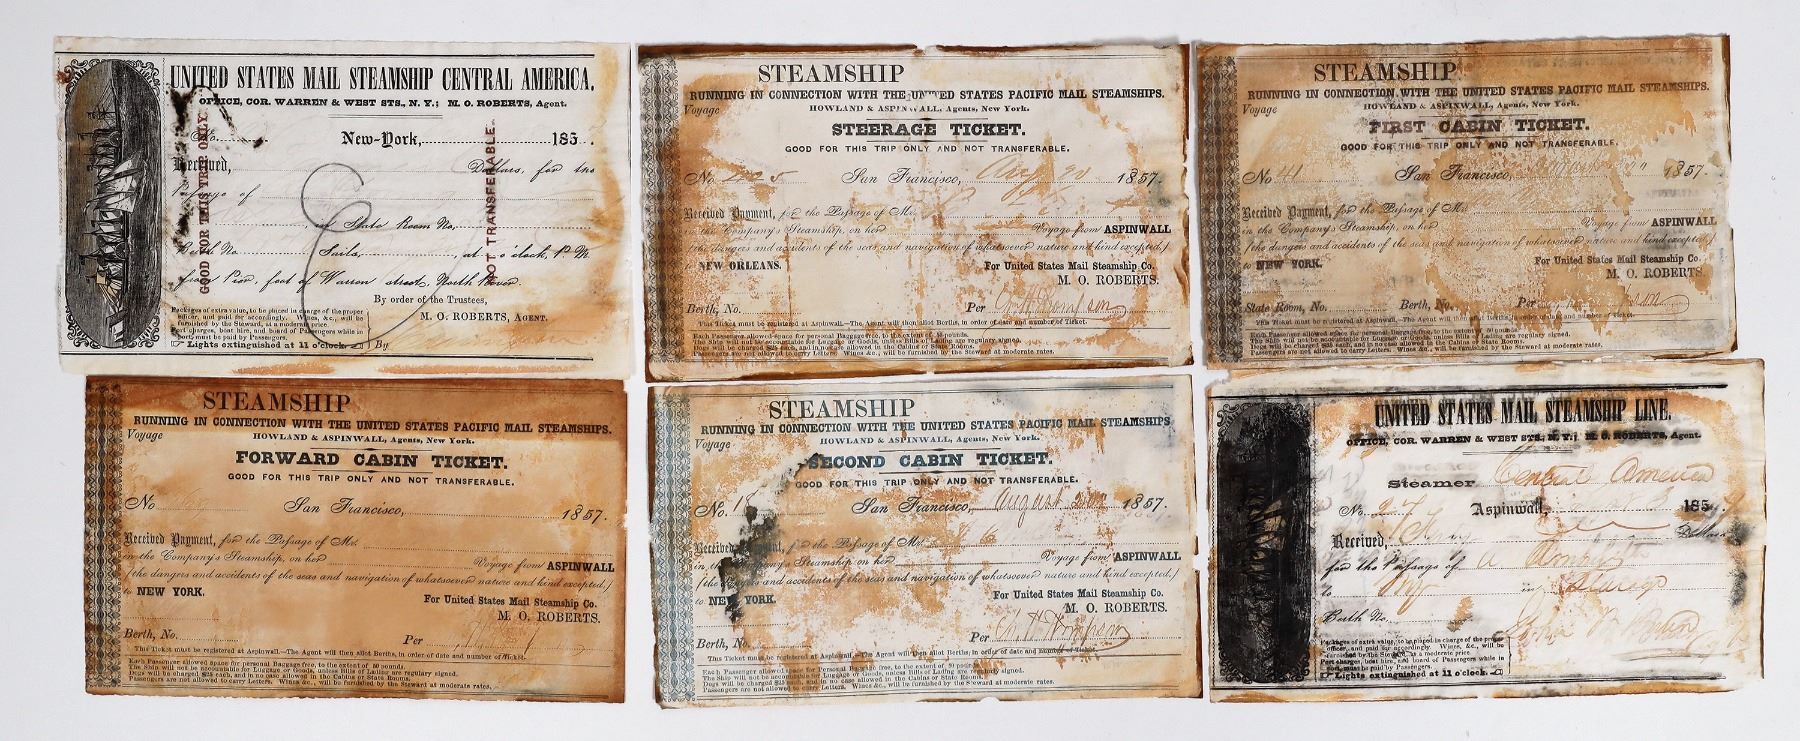 UNITED STATES MAIL STEAMSHIP CENTRAL AMERICA.
OFFICE, COR. WARREN & WEST STS., N. Y.; M. O. ROBERTS, Agent.
No.
New-York, 185 .
Received, Dollars, for the
Passage of
of State Room No.
Berth No. Sails, at o'clock, P. M.
from Pier, foot of Warren street, North River.
By order of the Trustees,
M. O. ROBERTS, AGENT.
Packages of extra value, to be placed in charge of the proper
officer, and paid for accordingly. Wines, &c., will be
furnished by the Steward, at a moderate price.
Port charges, boat hire, and board of Passengers while in
port, must be paid by Passengers.
Lights extinguished at 11 o'clock.
By
GOOD FOR THIS TRIP ONLY
NOT TRANSFERABLE.
STEAMSHIP
RUNNING IN CONNECTION WITH THE UNITED STATES PACIFIC MAIL STEAMSHIPS.
Voyage
HOWLAND & ASPINWALL, Agents, New York.
STEERAGE TICKET.
GOOD FOR THIS TRIP ONLY AND NOT TRANSFERABLE.
No. San Francisco, Aug 20 1857.
Received Payment, for the Passage of Mr.
in the Company's Steamship, on her Voyage from ASPINWALL
(the dangers and accidents of the seas and navigation of whatsoever nature and kind excepted,)
to NEW ORLEANS.
For United States Mail Steamship Co.
M. O. ROBERTS.
Berth, No. Per
This Ticket must be registered at Aspinwall.—The Agent will then allot Berths, in order of date and number of Ticket.
Each Passenger allowed space for personal Baggage free, to the extent of 50 pounds.
The Ship will not be accountable for Luggage or Goods, unless Bills of Lading are regularly signed.
Dogs will be charged $25 each, and in no case allowed in the Cabins or State Rooms.
Passengers are not allowed to carry Letters. Wines &c., will be furnished by the Steward at moderate rates.
STEAMSHIP
RUNNING IN CONNECTION WITH THE UNITED STATES PACIFIC MAIL STEAMSHIPS.
Voyage
HOWLAND & ASPINWALL, Agents, New York.
FIRST CABIN TICKET.
GOOD FOR THIS TRIP ONLY AND NOT TRANSFERABLE.
No. 41 San Francisco, 1857.
Received Payment, for the Passage of Mr.
in the Company's Steamship, on her Voyage from ASPINWALL
(the dangers and accidents of the seas and navigation of whatsoever nature and kind excepted,)
to NEW YORK.
For United States Mail Steamship Co.
M. O. ROBERTS.
State Room, No. Berth, No. Per
This Ticket must be registered at Aspinwall.—The Agent will then allot Berths, in order of date and number of Ticket.
Each Passenger allowed space for personal Baggage free, to the extent of 50 pounds.
The Ship will not be accountable for Luggage or Goods, unless Bills of Lading are regularly signed.
Dogs will be charged $25 each, and in no case allowed in the Cabins or State Rooms.
Passengers are not allowed to carry Letters. Wines &c., will be furnished by the Steward at moderate rates.
STEAMSHIP
RUNNING IN CONNECTION WITH THE UNITED STATES PACIFIC MAIL STEAMSHIPS.
Voyage
HOWLAND & ASPINWALL, Agents, New York.
FORWARD CABIN TICKET.
GOOD FOR THIS TRIP ONLY AND NOT TRANSFERABLE.
No San Francisco, 1857.
Received Payment, for the Passage of Mr.
in the Company's Steamship, on her Voyage from ASPINWALL
(the dangers and accidents of the seas and navigation of whatsoever nature and kind excepted,)
to NEW YORK.
For United States Mail Steamship Co.
M. O. ROBERTS.
Berth, No. Per
This Ticket must be registered at Aspinwall.—The Agent will then allot Berths, in order of date and number of Ticket.
Each Passenger allowed space for personal Baggage free, to the extent of 50 pounds.
The Ship will not be accountable for Luggage or Goods, unless Bills of Lading are regularly signed.
Dogs will be charged $25 each, and in no case allowed in the Cabins or State Rooms.
Passengers are not allowed to carry Letters. Wines, &c., will be furnished by the Steward at moderate rates.
STEAMSHIP
RUNNING IN CONNECTION WITH THE UNITED STATES PACIFIC MAIL STEAMSHIPS
Voyage
HOWLAND & ASPINWALL, Agents, New York.
SECOND CABIN TICKET.
GOOD FOR THIS TRIP ONLY AND NOT TRANSFERABLE.
No. San Francisco, August 1857.
Received Payment, for the Passage of Mr.
in the Company's Steamship on her Voyage from ASPINWALL
(the dangers and accidents of the seas and navigation of whatsoever nature and kind excepted,)
to NEW YORK.
For United States Mail Steamship Co.
M. O. ROBERTS.
Berth, No. Per
This Ticket must be registered at Aspinwall.—The Agent will then allot Berths, in order of date and number of Ticket.
Each Passenger allowed space for Personal Baggage free, to the extent of 50 pounds.
The Ship will not be accountable for Luggage or Goods, unless Bills of Lading are regularly signed.
Dogs will be charged $25 each, and in no case allowed in the Cabins or State Rooms.
Passengers are not allowed to carry Letters. Wines &c., will be furnished by the Steward at moderate rates.
UNITED STATES MAIL STEAMSHIP LINE.
OFFICE, COR. WARREN & WEST STS., N. Y.; M. O. ROBERTS, Agent.
Steamer Central America
No. 27 Aspinwall, 185
Received, Dollars
for the Passage of
to in
Berth No.
Packages of extra value, to be placed in charge of the proper
officer, and paid for accordingly. Wines, &c., will be
furnished by the Steward, at a moderate price.
Port charges, boat hire, and board of Passengers while in
port, must be paid by Passengers.
Lights extinguished at 11 o'clock.